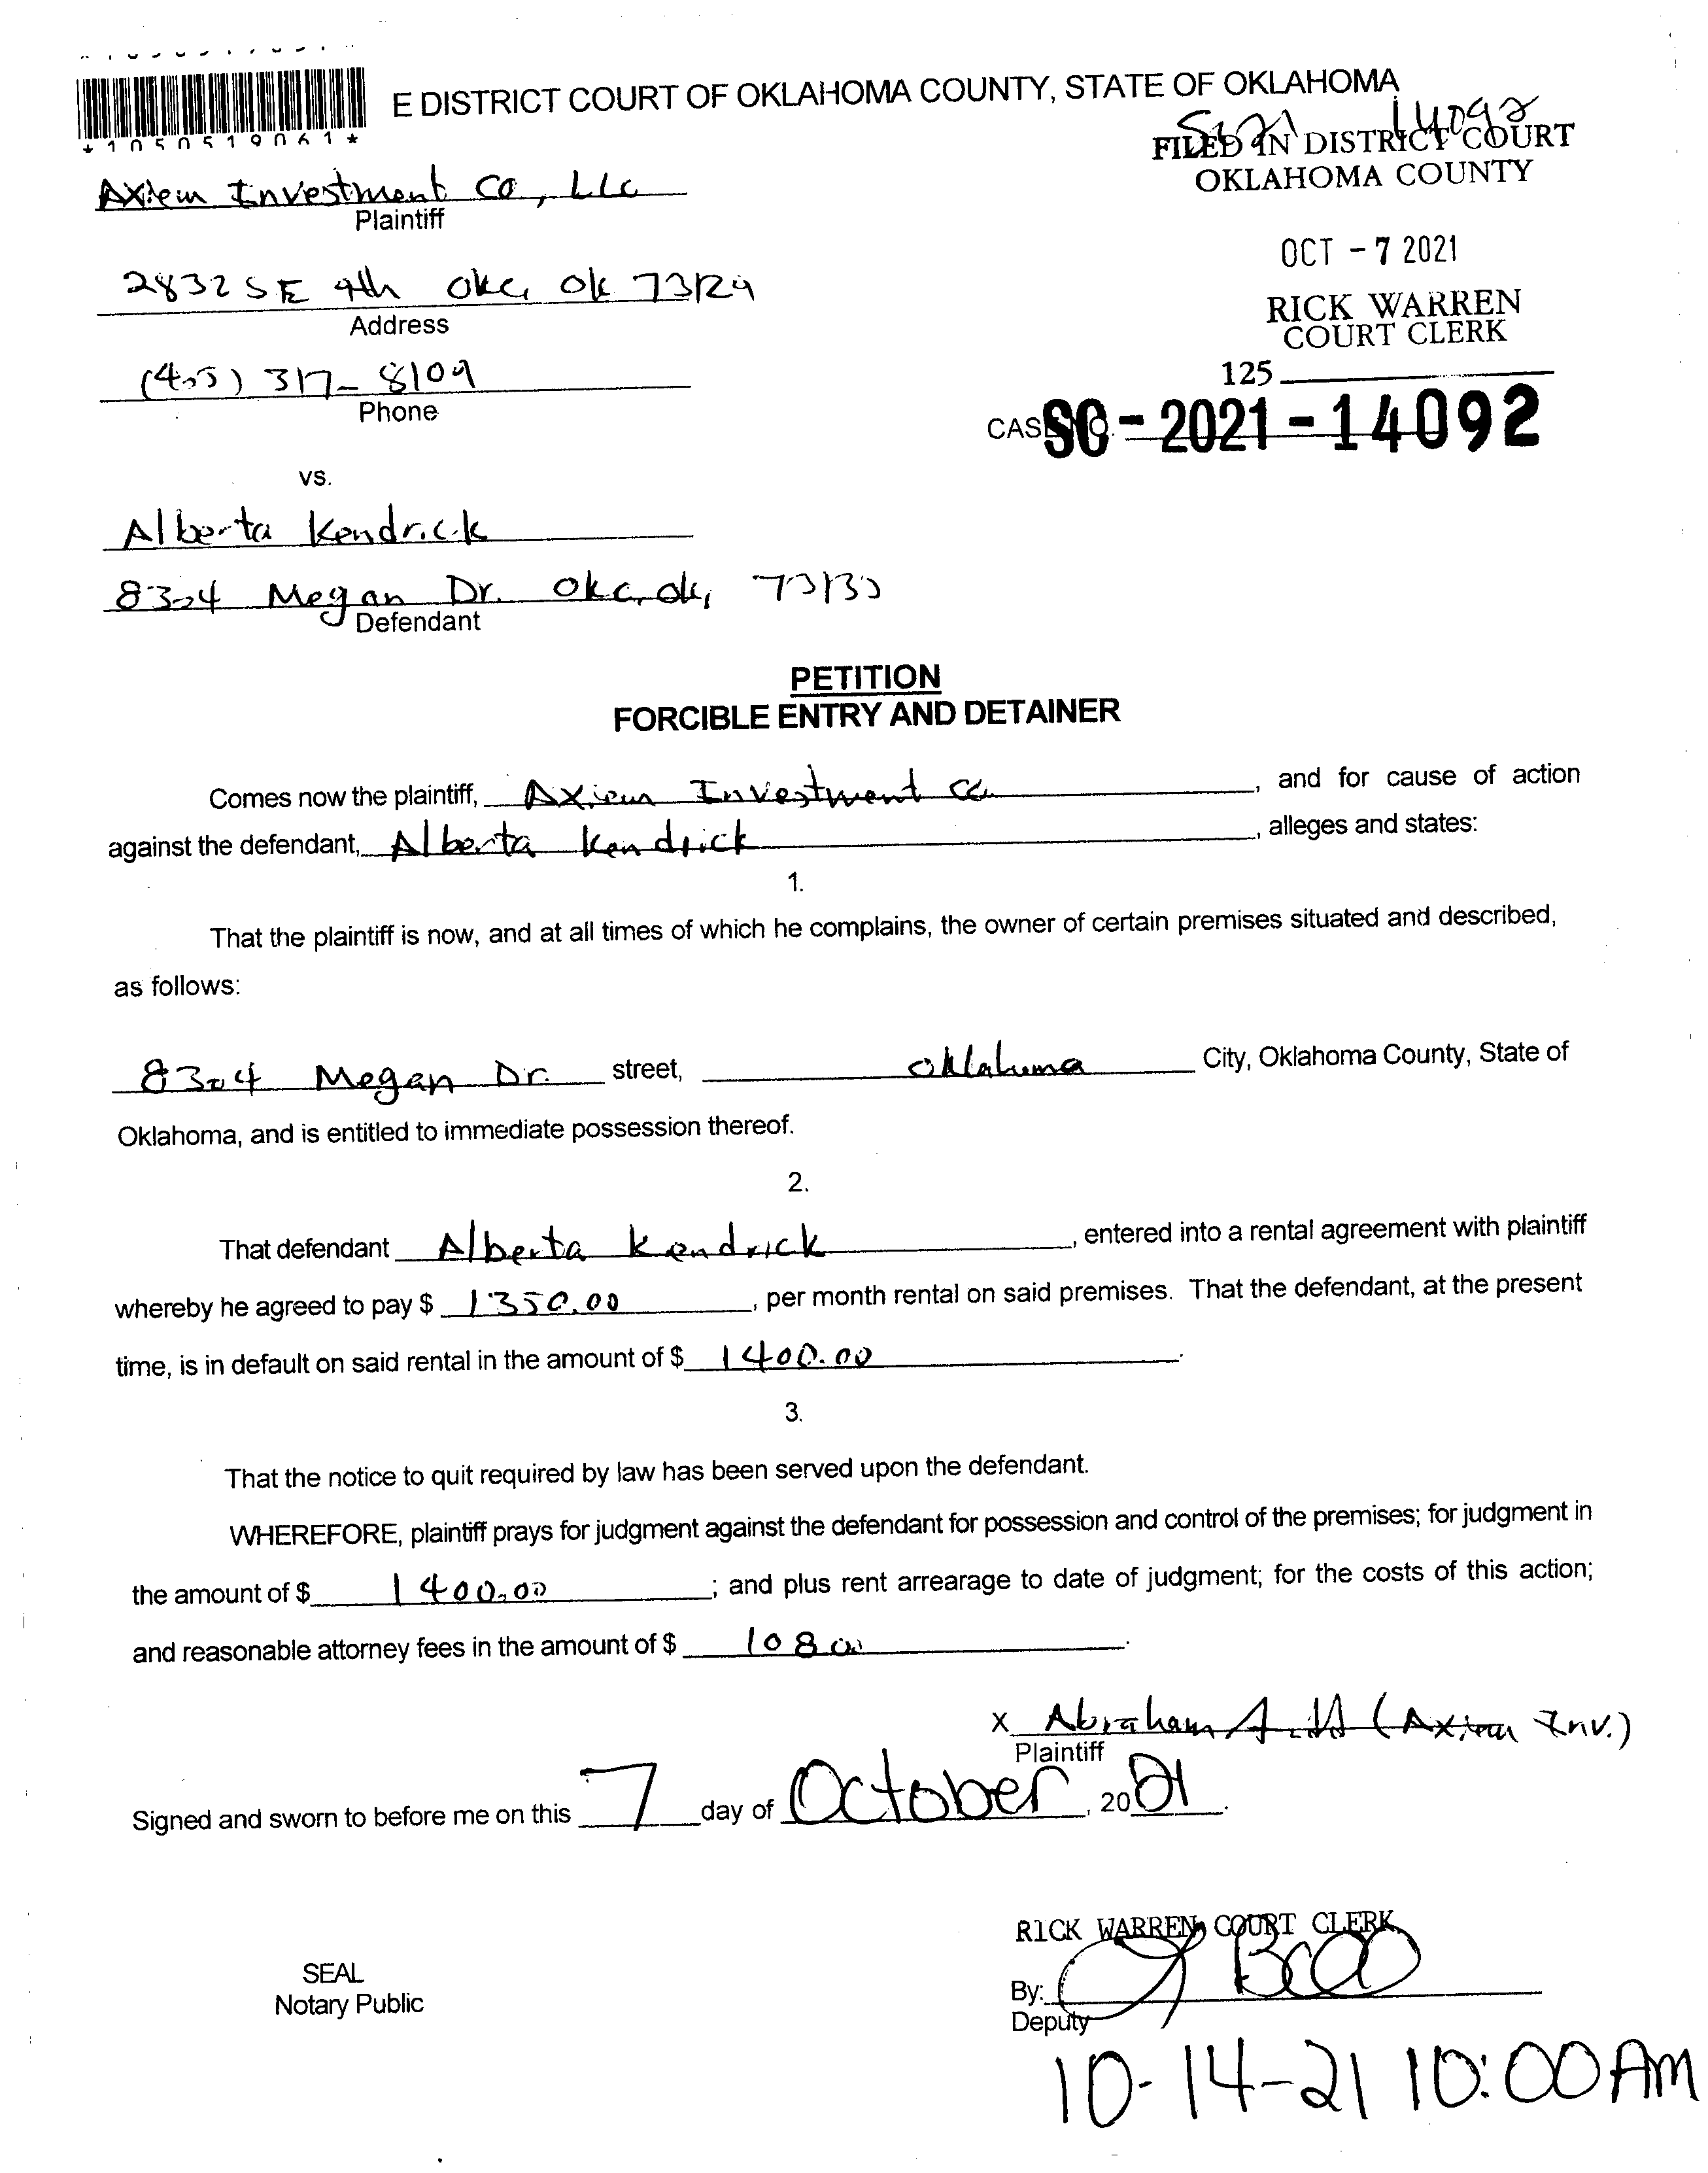 *1050519061*
E DISTRICT COURT OF OKLAHOMA COUNTY, STATE OF OKLAHOMA
14092
FILED IN DISTRICT COURT
OKLAHOMA COUNTY
Axiem Investment Co, LLC
Plaintiff
OCT - 7 2021
2832 SE 4th OKC, OK 73129
Address
RICK WARREN
COURT CLERK
125
(405) 317-8109
Phone
CAS SC-2021-14092
vs.
Alberta Kendrick
8304 Megan Dr. OKC, OK,
Defendant
PETITION
FORCIBLE ENTRY AND DETAINER
Comes now the plaintiff, Axiem Investment Co, and for cause of action
against the defendant, Alberta Kendrick, alleges and states:
1.
That the plaintiff is now, and at all times of which he complains, the owner of certain premises situated and described,
as follows:
8304 Megan Dr. street, Oklahoma City, Oklahoma County, State of
Oklahoma, and is entitled to immediate possession thereof.
2.
That defendant Alberta Kendrick, entered into a rental agreement with plaintiff
whereby he agreed to pay $ 1350.00, per month rental on said premises. That the defendant, at the present
time, is in default on said rental in the amount of $ 1400.00.
3.
That the notice to quit required by law has been served upon the defendant.
WHEREFORE, plaintiff prays for judgment against the defendant for possession and control of the premises; for judgment in
the amount of $ 1400.00; and plus rent arrearage to date of judgment; for the costs of this action;
and reasonable attorney fees in the amount of $ 108.
X Abraham (Axiem Inv.)
Plaintiff
Signed and sworn to before me on this 7 day of October, 2021.
RICK WARREN, COURT CLERK
SEAL
Notary Public
By:
Deputy
10-14-21 10:00 AM